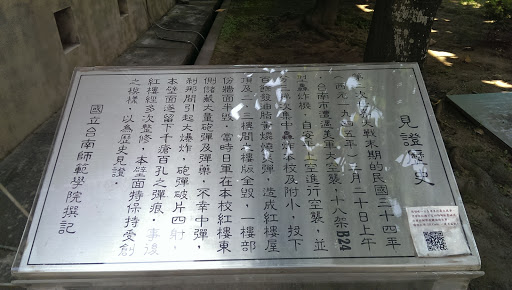 見證歷史
第二次世界大戰末期的民國三十四年
西元一九四五年一月二十日上午
,台南市遭遇美軍大空襲,十八架B24
型轟炸機,自安平上空進行空襲,並
分三梯次集中轟炸本校及附小,投下
百餘發油脂黃燐燒夷彈,造成紅樓屋
頂及二、三樓間木樓版全毀,一樓部
份牆面半毀,當時日軍在本校紅樓東
側儲藏大量砲彈及彈藥,不幸中彈,
剎那間引起大爆炸,砲彈破片四射,
本壁面遂留下千瘡百孔之彈痕,事後
紅樓經多次整修,本壁面特保持受創
之模樣,以為歷史見證.
國立台南師範學院撰記